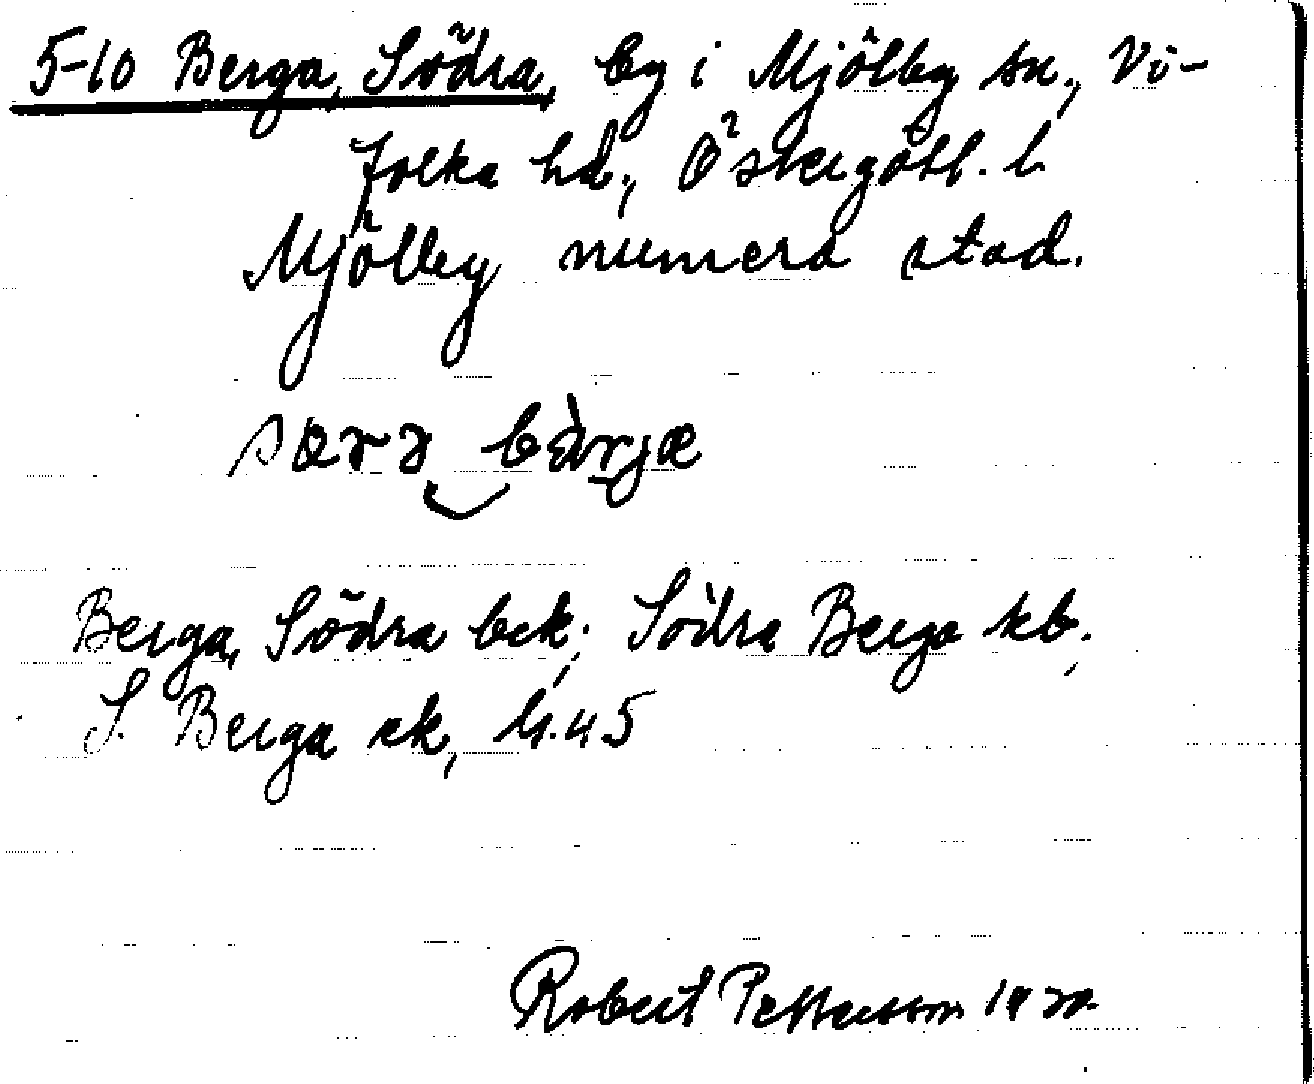 5-10 Berga, Södra, by i Mjölby sn., Vi-
folka hd., Östergötl. l.
Mjölby numera stad.
særə bàrjæ
Berga, Södra bek; Södra Berga kb;
S. Berga ek,
Robert Pettersson